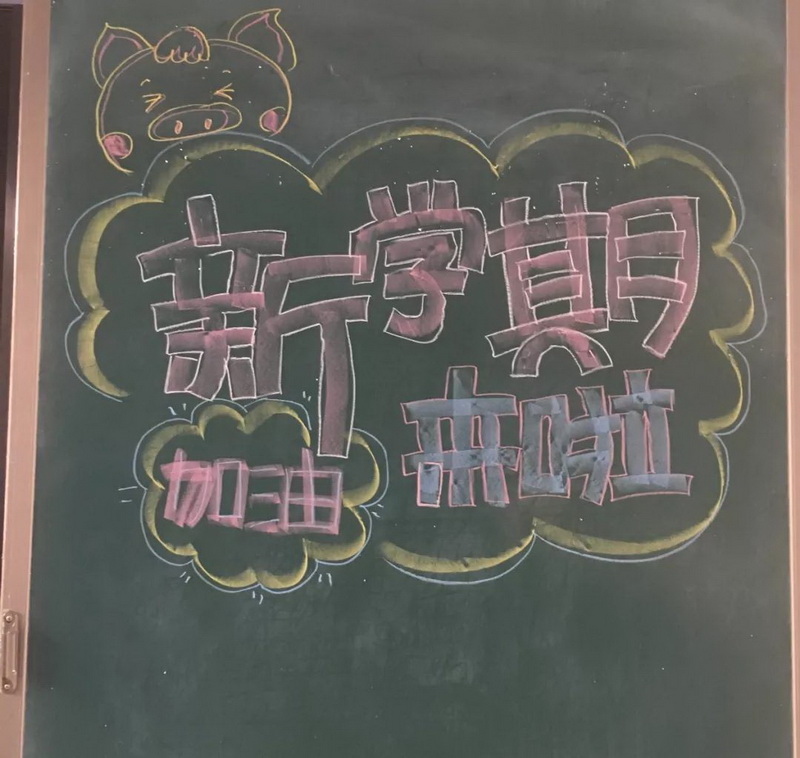 新学期
来啦
加油